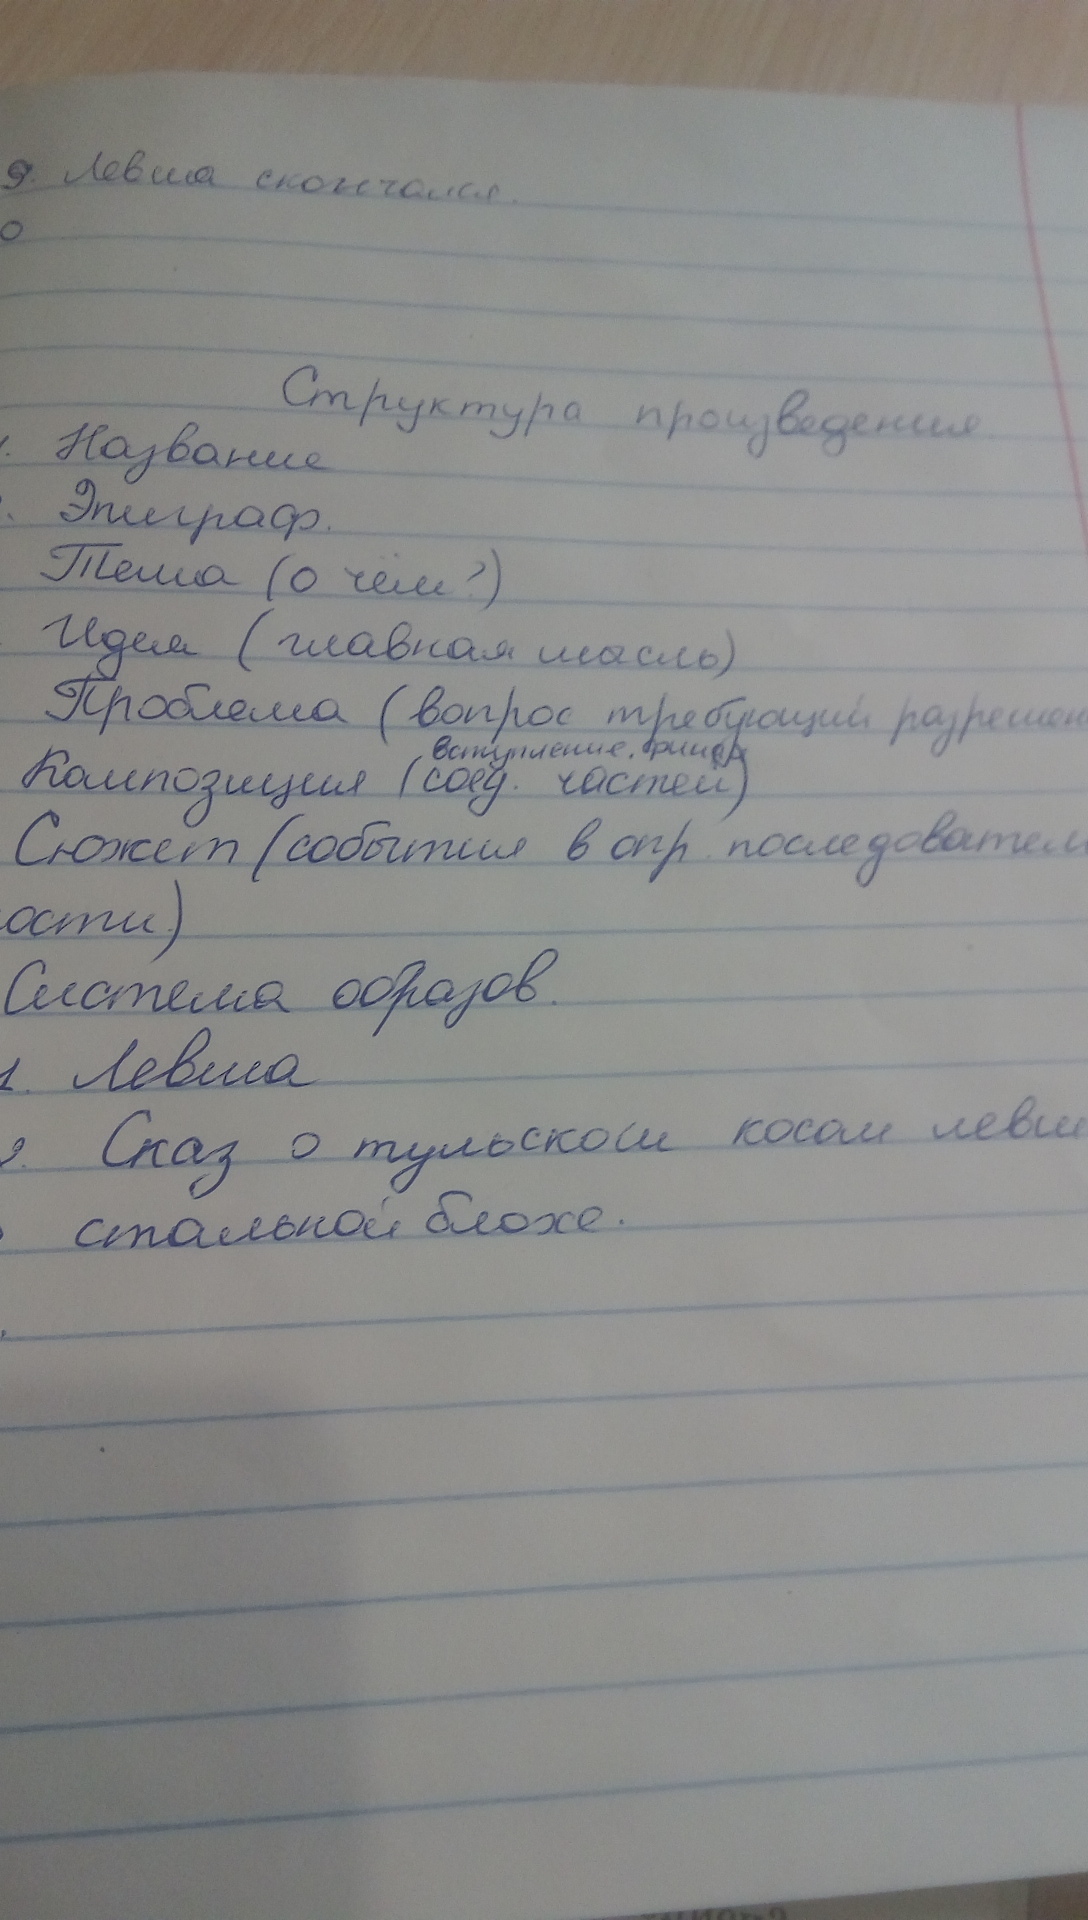 9. Левша скончался.
0
Структура произведения
1. Название
. Эпиграф.
Тема (о чём?)
Идея (главная мысль)
Проблема (вопрос требующий разрешен
вступление, финал
Композиция (соед. частей)
Сюжет (события в опр. последовател
ости)
Система образов.
1. Левша
2. Сказ о тульском косом левш
стальной блохе.